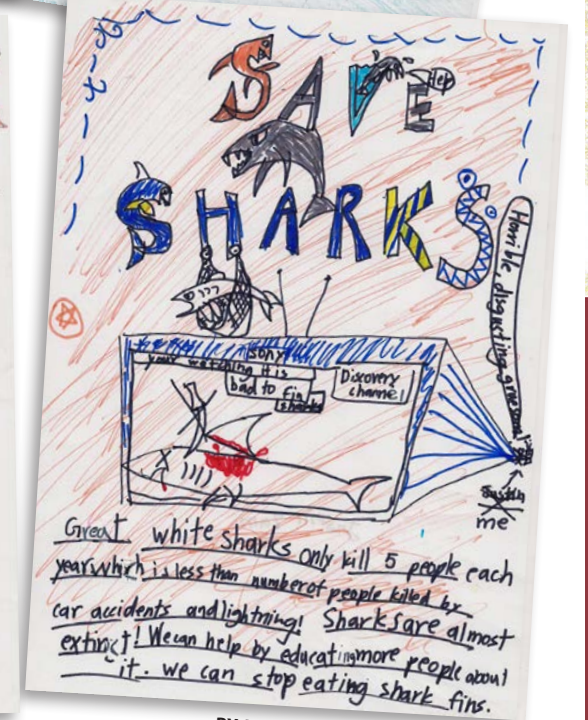 SAVE
Help
SHARKS
Horrible, disgusting, gruesome!
sony
your watching it is
bad to fin
sharks
Discovery
channel
me
Great white sharks only kill 5 people each
year which is less than number of people killed by
car accidents and lightning! Sharks are almost
extinct! We can help by educating more people about
it. we can stop eating shark fins.